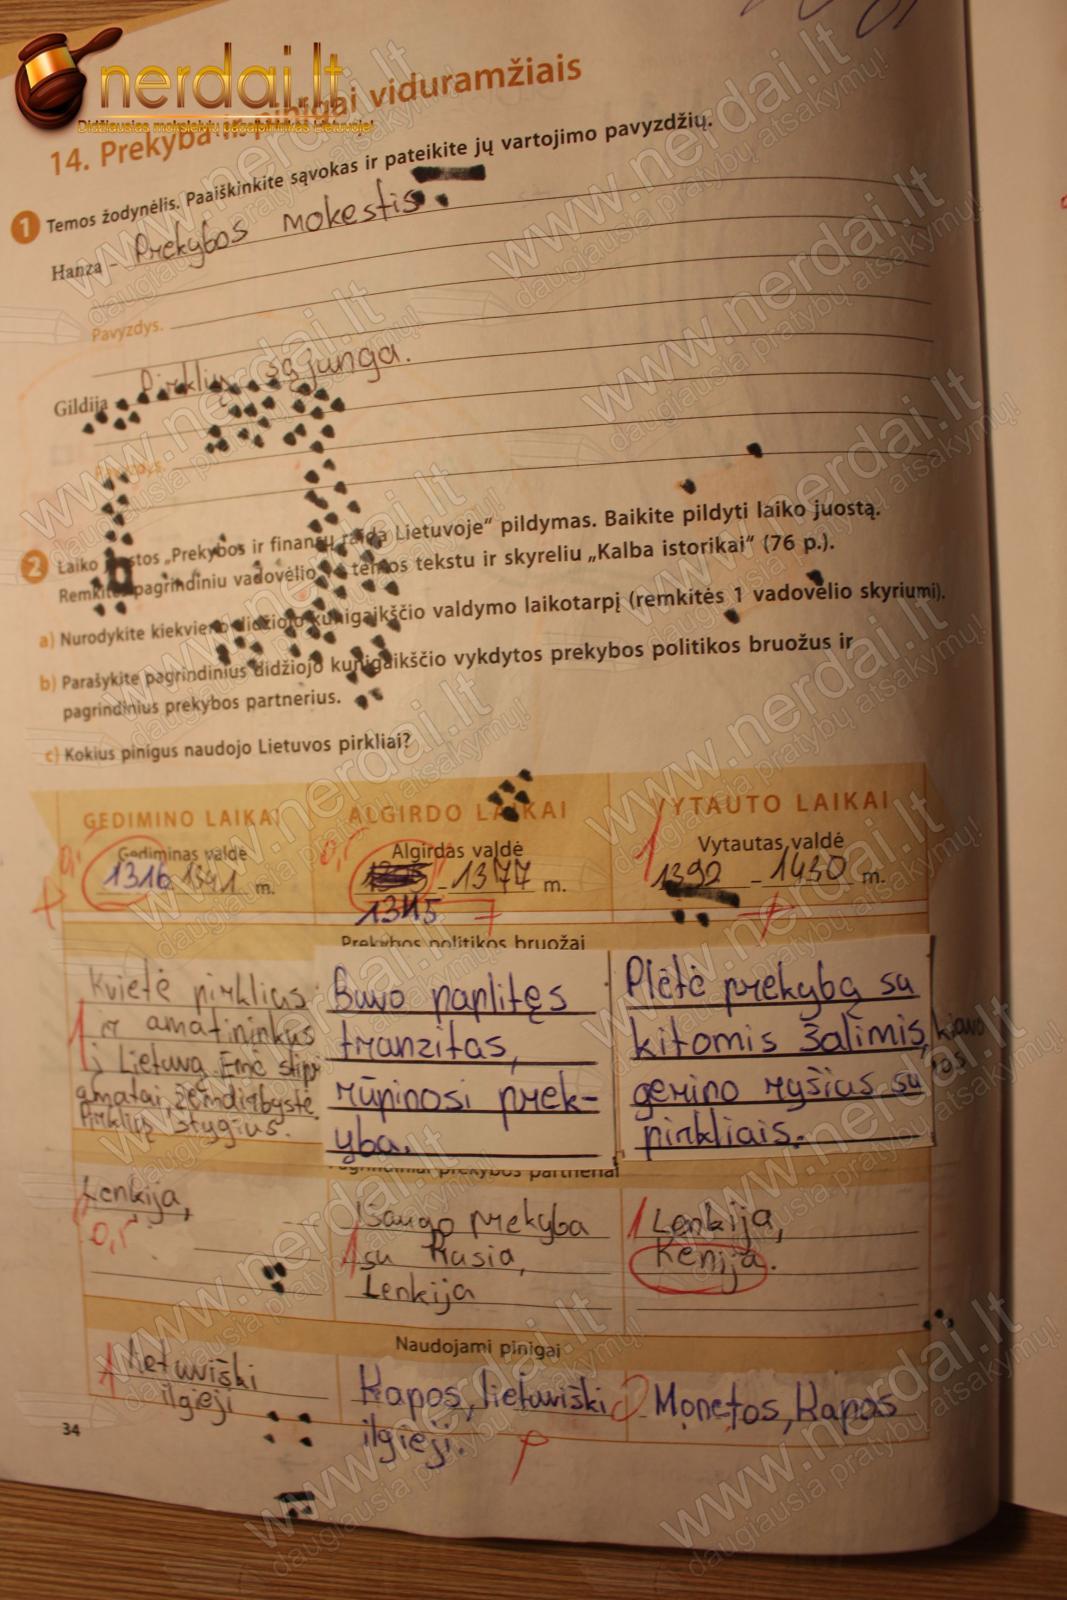 nerdai.lt
Didžiausias moksleivių pagalbininkas Lietuvoje!
14. Prekyba ir pinigai viduramžiais
1 Temos žodynėlis. Paaiškinkite sąvokas ir pateikite jų vartojimo pavyzdžių.
Hanza – Prekybos mokestis.
Pavyzdys.
Gildija Pirklių sąjunga.
Pavyzdys.
2 Laiko juostos „Prekybos ir finansų raida Lietuvoje“ pildymas. Baikite pildyti laiko juostą.
Remkitės pagrindiniu vadovėlio temos tekstu ir skyreliu „Kalba istorikai“ (76 p.).
a) Nurodykite kiekvieno didžiojo kunigaikščio valdymo laikotarpį (remkitės 1 vadovėlio skyriumi).
b) Parašykite pagrindinius didžiojo kunigaikščio vykdytos prekybos politikos bruožus ir
pagrindinius prekybos partnerius.
c) Kokius pinigus naudojo Lietuvos pirkliai?
GEDIMINO LAIKAI ALGIRDO LAIKAI VYTAUTO LAIKAI
Gediminas valdė Algirdas valdė Vytautas valdė
1316 1341 m. – 1377 m. 1392 – 1430 m.
1345
Prekybos politikos bruožai
Kvietė pirklius Buvo paplitęs Plėtė prekybą su
ir amatininkus tranzitas, kitomis šalimis,
į Lietuvą. Ėmė stipr rūpinosi prek- gerino ryšius su
amatai, žemdirbystė. yba. pirkliais.
Pirklių stygius.
Pagrindiniai prekybos partneriai
Lenkija, Išaugo prekyba Lenkija,
0,5 su Rusia, Kenija.
Lenkija
Naudojami pinigai
Lietuviški Kapos, lietuviški Monetos, Kapos
ilgieji ilgieji.
34
www.nerdai.lt
daugiausia pratybų atsakymų!